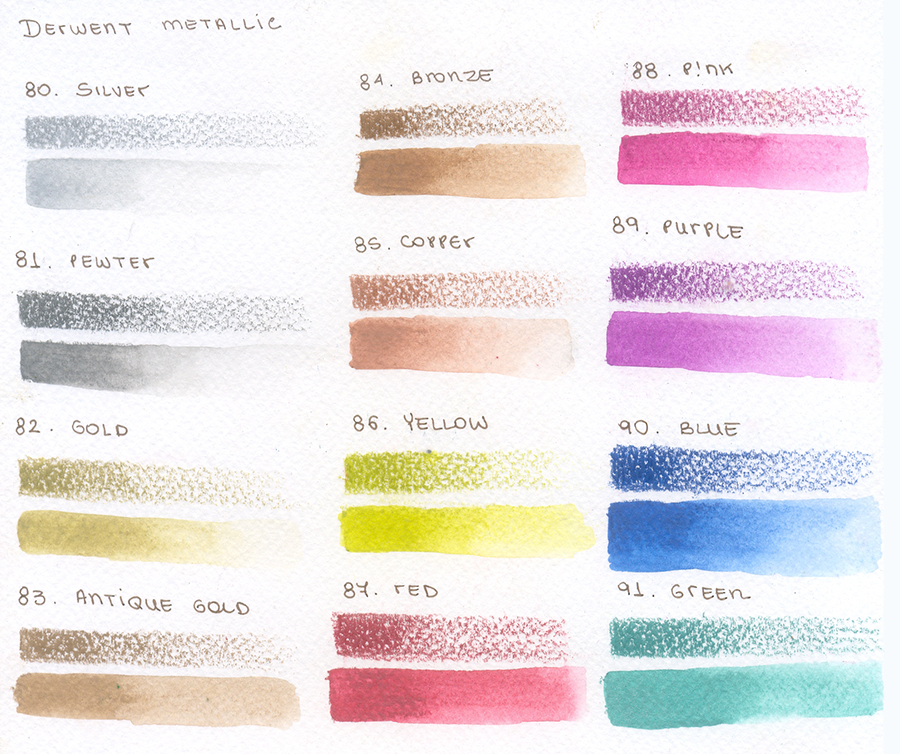 Derwent metallic
80. Silver
81. Pewter
82. Gold
83. Antique Gold
84. Bronze
85. Copper
86. Yellow
87. red
88. P!nk
89. Purple
90. Blue
91. Green